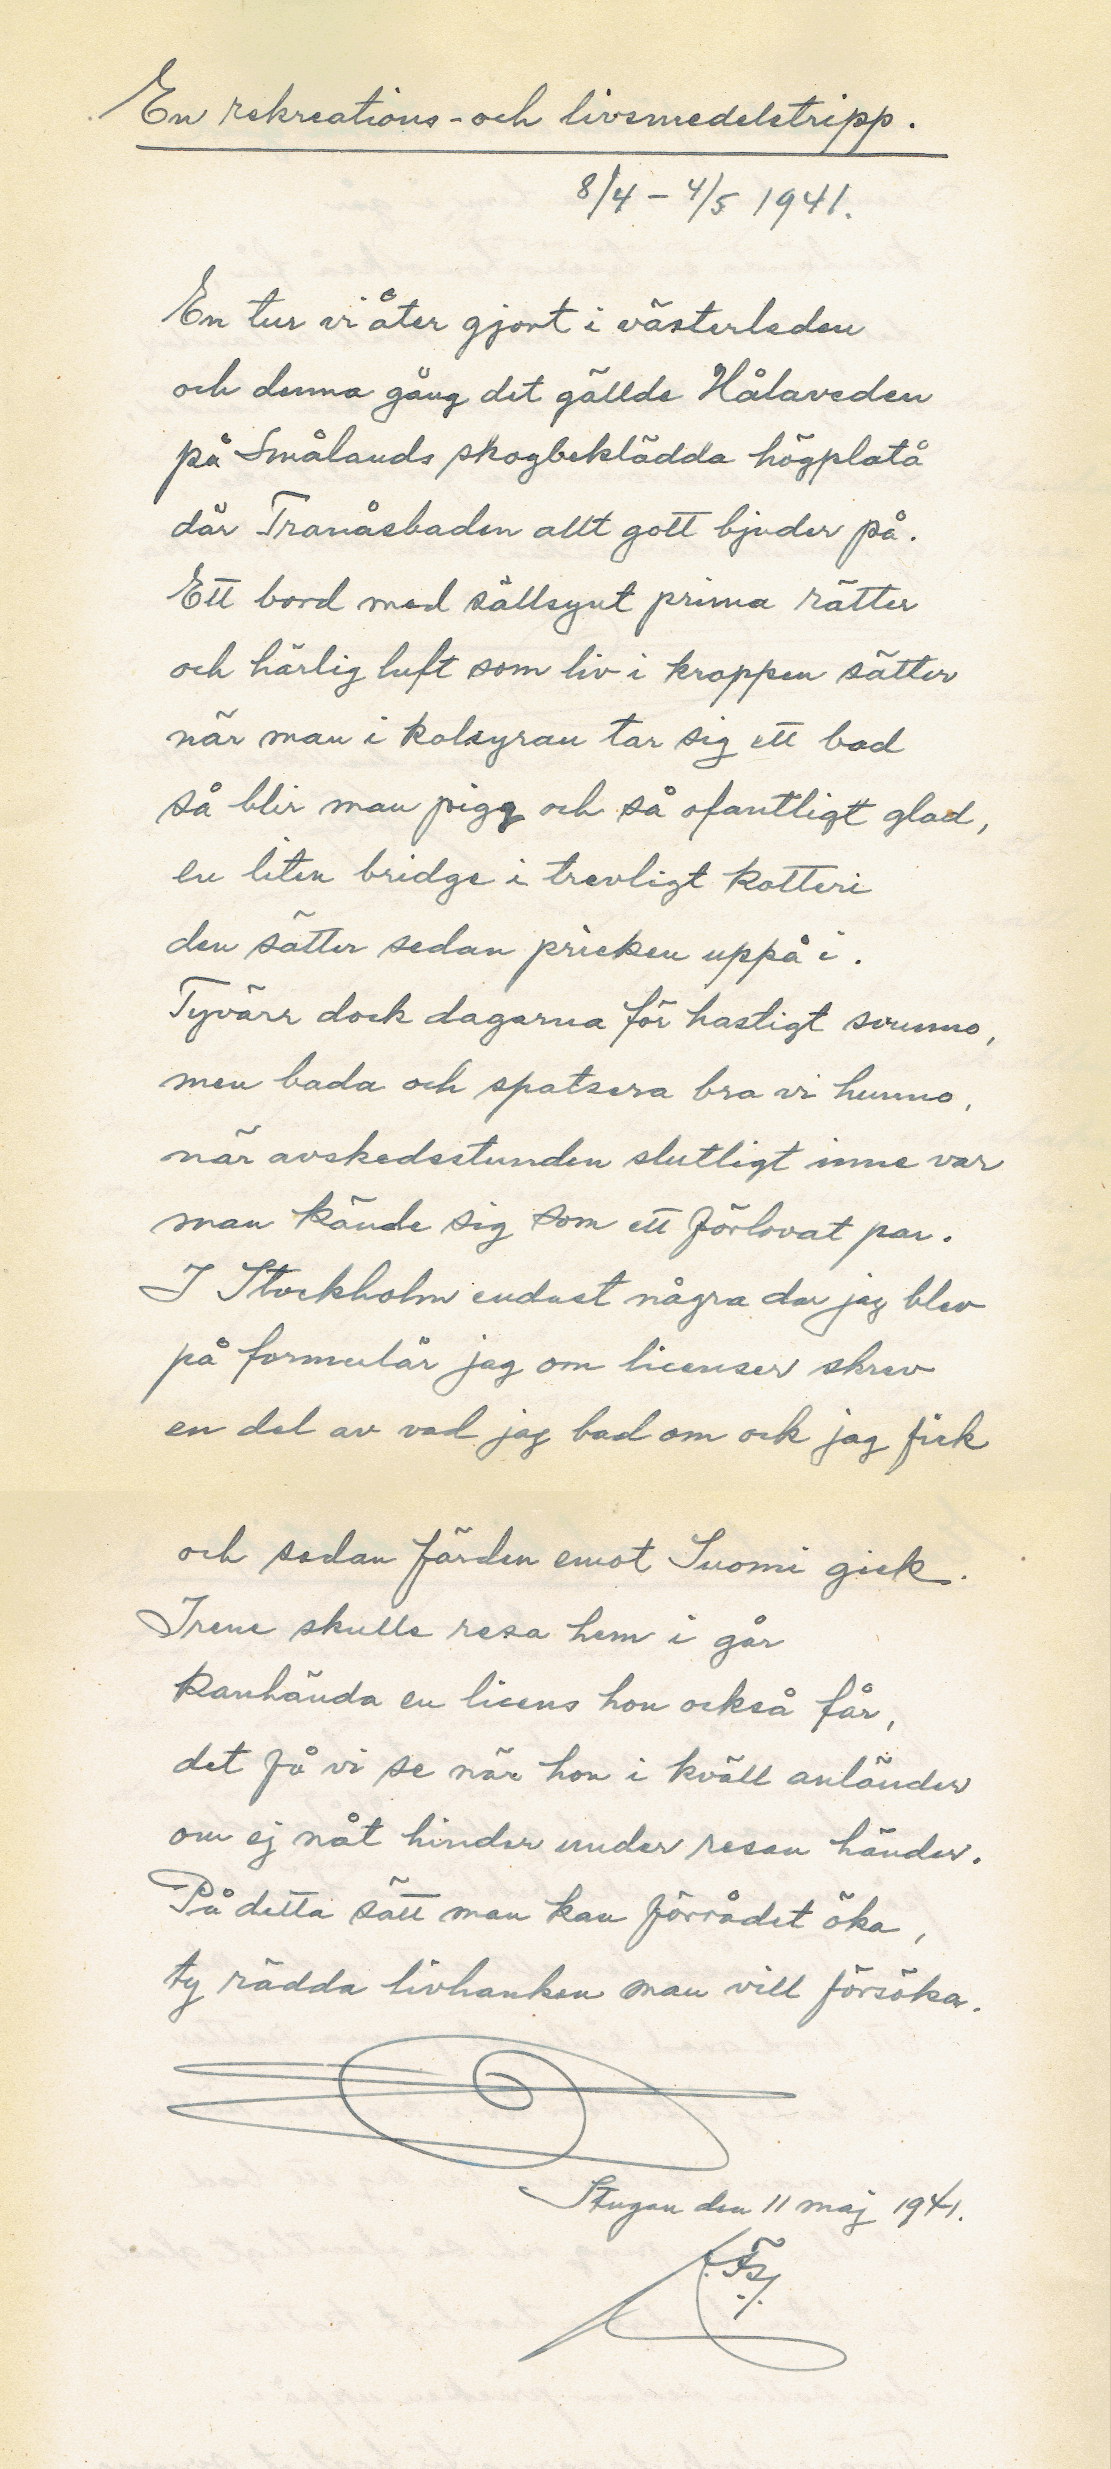 En rekreations- och livsmedelstripp.
8/4 – 4/5 1941.
En tur vi åter gjort i västerleden
och denna gång det gällde Hålaveden
på Smålands skogbeklädda högplatå
där Tranåsbaden allt gott bjuder på.
Ett bord med sällsynt prima rätter
och härlig luft som liv i kroppen sätter
när man i kolsyran tar sig ett bad
så blir man pigg och så ofantligt glad,
en liten bridge i trevligt kotteri
den sätter sedan pricken uppå i.
Tyvärr dock dagarna för hastigt svunno,
men bada och spatsera bra vi hunno,
när avskedsstunden slutligt inne var
man kände sig som ett förlovat par.
I Stockholm endast några da jag blev
på formulär jag om licenser skrev
en del av vad jag bad om ock jag fick
och sedan färden emot Suomi gick.
Irene skulle resa hem i går
kanhända en licens hon också får,
det få vi se när hon i kväll anländer
om ej nåt hinder under resan händer.
På detta sätt man kan förrådet öka,
ty rädda livhanken man vill försöka.
Stugan den 11 maj 1941.